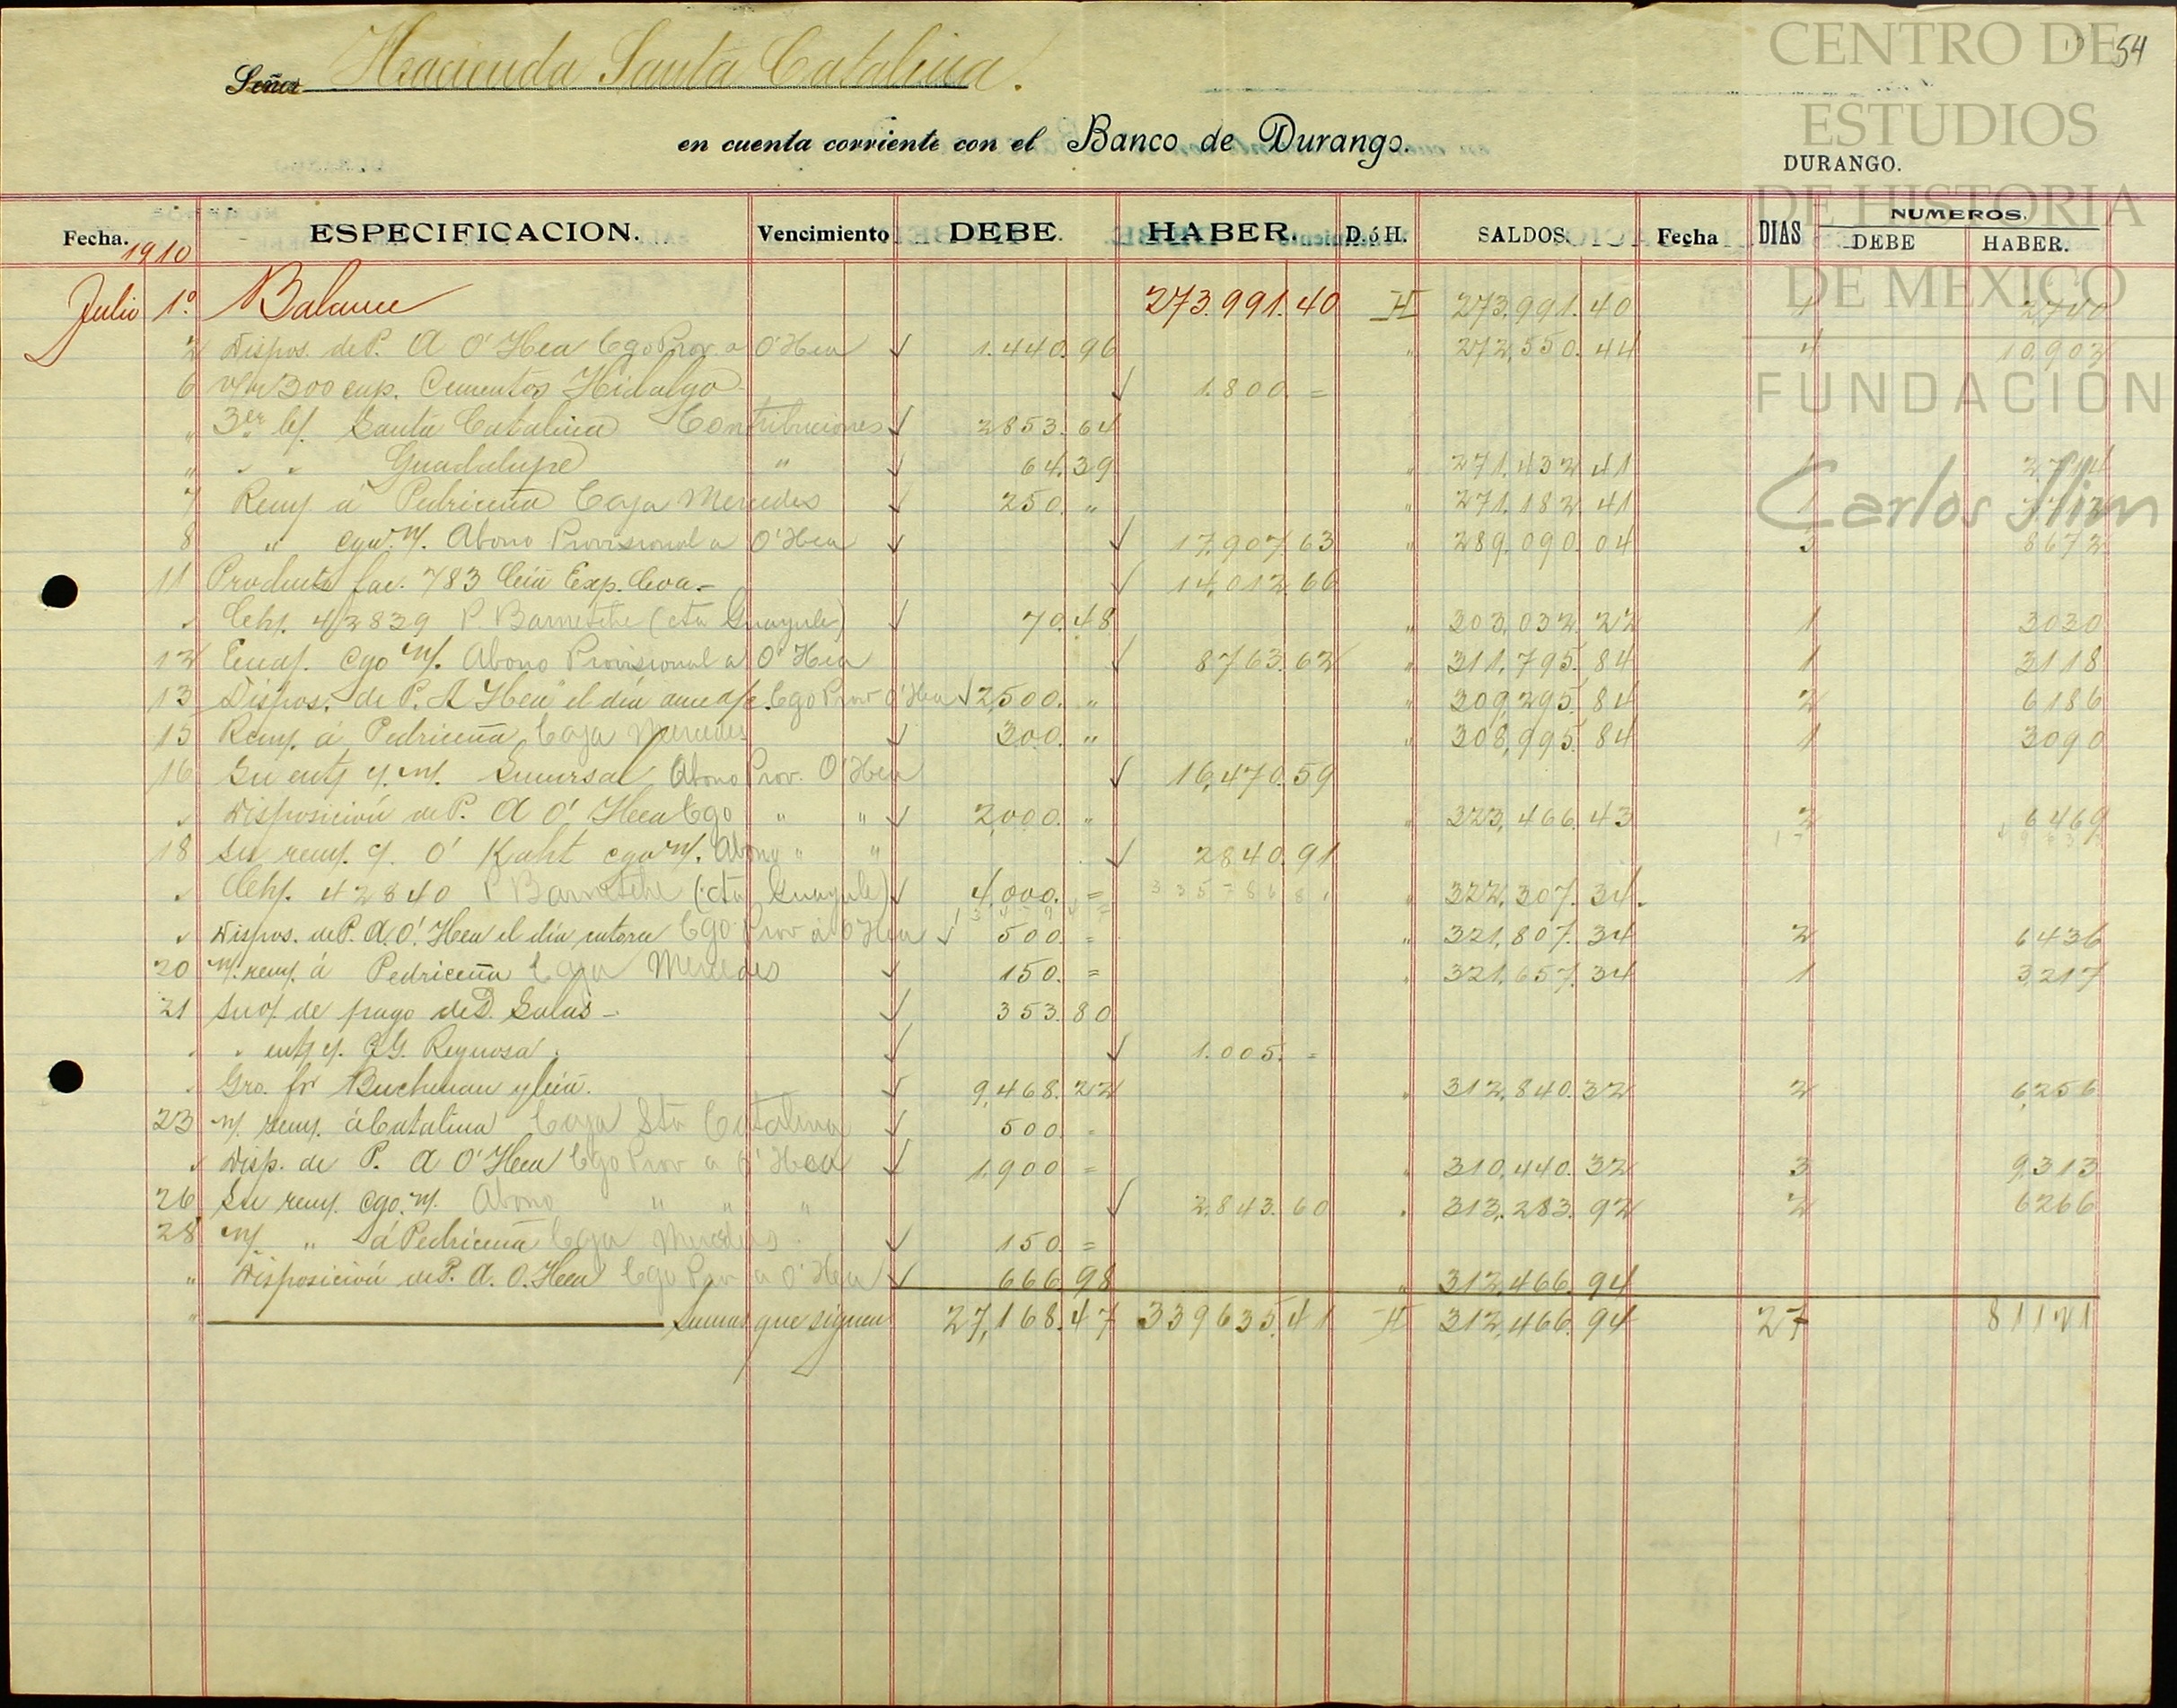 CENTRO DE
ESTUDIOS
DE HISTORIA
DE MEXICO
FUNDACIÓN
Carlos Slim
54
Señor Hacienda Santa Catalina.
en cuenta corriente con el Banco de Durango.
DURANGO.
Fecha. ESPECIFICACION. Vencimiento DEBE. HABER. D. ó H. SALDOS. Fecha DIAS NUMEROS. DEBE HABER.
1910
Julio 1º Balance 273.991.40 H 273.991.40 1 2,740
2 Dispos. de P. A O'Hea Cgo Prov. a O'Hea 1.440.96 " 272,550.44 4 10,902
6 300 cup. Cementos Hidalgo 1.800. =
" 3er Santa Catalina Contribuciones 2853.64
" " " Guadalupe " 64.39 " 271,432.41 1 2,714
7 Rem/. á Pedriceña Caja Mercedes 250. " " 271.182.41 1 2712
8 " cgo. n/. Abono Provisional a O'Hea 17.907.63 " 289,090.04 3 8672
11 Producto fac. 783 Cia Exp. Coa.- 14,012.66
" Ch/. 42839 P. Barnetche (cta Guayule) 70.48 " 303,032.22 1 3030
12 cgo n/. Abono Provisional a O'Hea 8763.62 " 311,795.84 1 3118
13 Dispos. de P. A Hea el día Cgo Prov O'Hea 2,500. " " 309,295.84 2 6186
15 Rem/. á Pedriceña Caja Mercedes 300. " " 308,995.84 1 3090
16 Su Sucursal Abono Prov. O'Hea 16,470.59
" Disposición de P. A O'. Hea Cgo " " 2,000. " " 323,466.43 2 6469
18 Su rem/. O' cgo n/. Abono " " 2840.91
" Ch/. 42840 P Barnetche (cta Guayule) 4,000. = " 322,307.34.
" Dispos. de P. A. O'. Hea el día catorce Cgo Prov a O'Hea 500. = " 321,807.34 2 6436
20 n/. rem/. á Pedriceña Caja Mercedes 150. = " 321,657.34 1 3,217
21 Su o/. de pago de D. Salas - 353.80
" " Reynosa. 1.005. =
" Gro. fr Buchenau y Cia. 9,468.22 " 312,840.32 2 6,256
23 n/. rem/. á Catalina Caja Sta Catalina 500 =
" Disp. de P. A O'Hea Cgo Prov a O'Hea 1,900 = " 310,440.32 3 9,313
26 Su rem/. cgo. n/. Abono " " " 2,843.60 " 313,283.92 2 6266
28 n/ " á Pedriceña Caja Mercedes. 150. =
" Disposición de P. A. O. Hea Cgo Prov a O'Hea 666.98 " 312,466.94
" Sumas que siguen 27,168.47 339635.41 H 312,466.94 27 81121